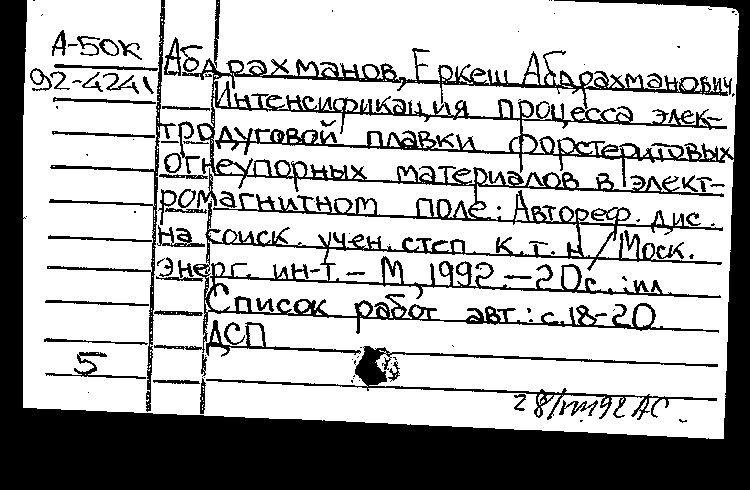 А-50К
92-4241
Абдрахманов, Еркеш Абдрахманович.
Интенсификация процесса элек-
тродуговой плавки форстеритовых
огнеупорных материалов в элект-
ромагнитном поле: Автореф. дис.
на соиск. учен. степ. к.т.н/Моск.
энерг. ин-т. - М, 1992. - 20с.: ил.
Список работ авт.: с.18-20.
ДСП
5
28/VIII92 АС.